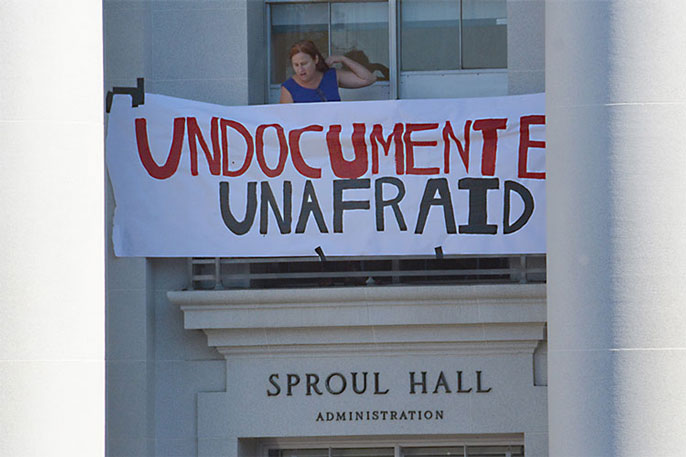 UNDOCUMENTE
UNAFRAID
SPROUL HALL
ADMINISTRATION